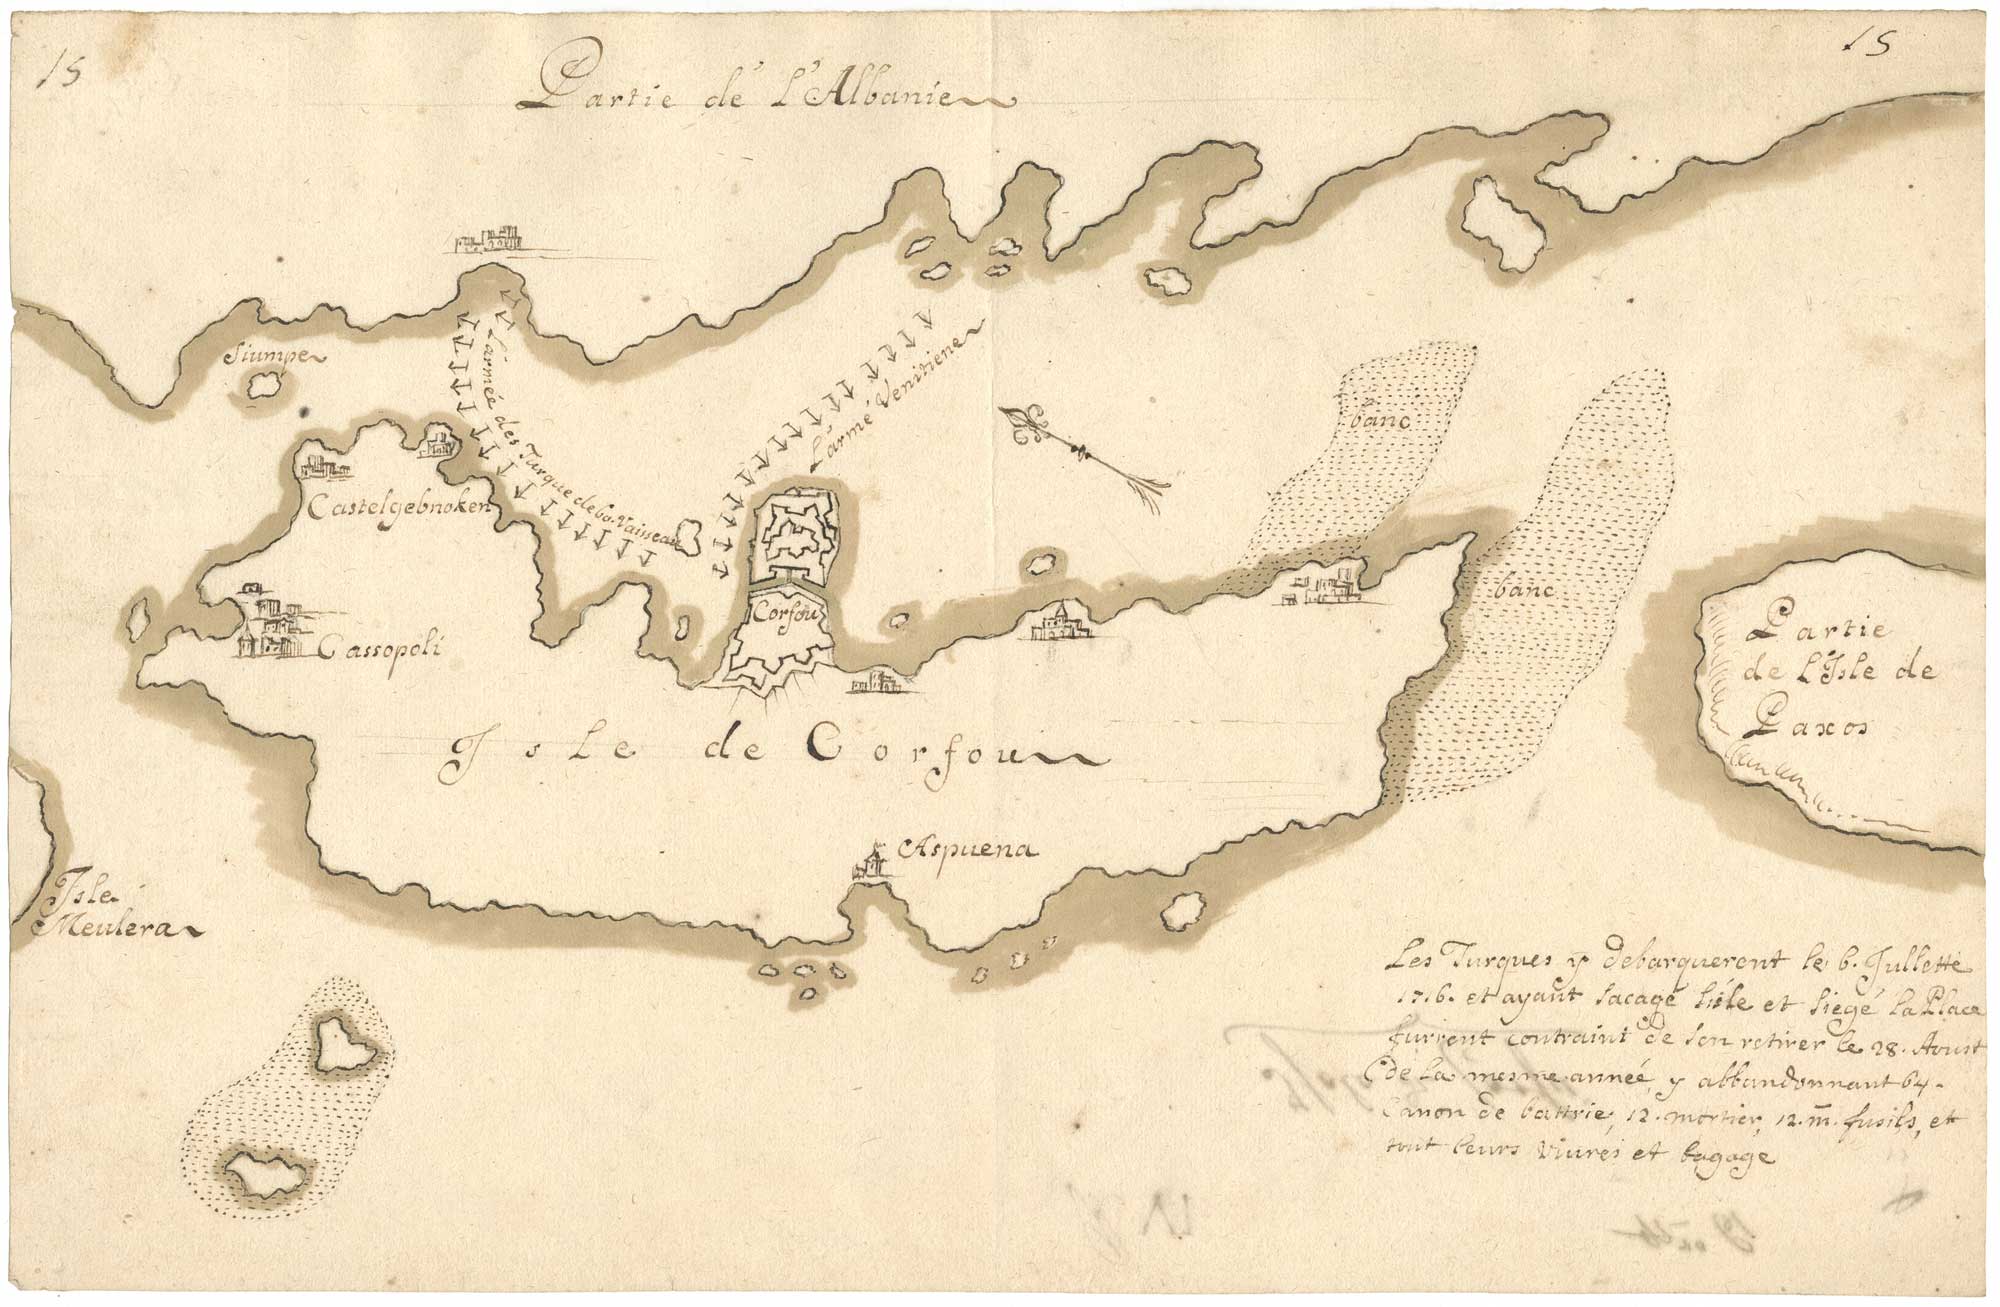 15
15
Partie de L'Albanie
Siumpe
L'armée des Turque de 60. Vaisseau
L'armé Venitiene
banc
banc
Castelgebnoken
Cassopoli
Corfou
Isle de Corfou
Aspuena
Partie
de L'Isle de
Paxos
Isle
Meulera
Les Turques y debarquerent le 6. Jullette
1716. et ayant sacagé lisle et siegé la Place
furrent contraint de son retirer le 28. Aoust
de la mesme année, y abbandonnant 64.
Canon de battrie, 12. mortier, 12. m. fusils, et
tout leurs vivres et bagage